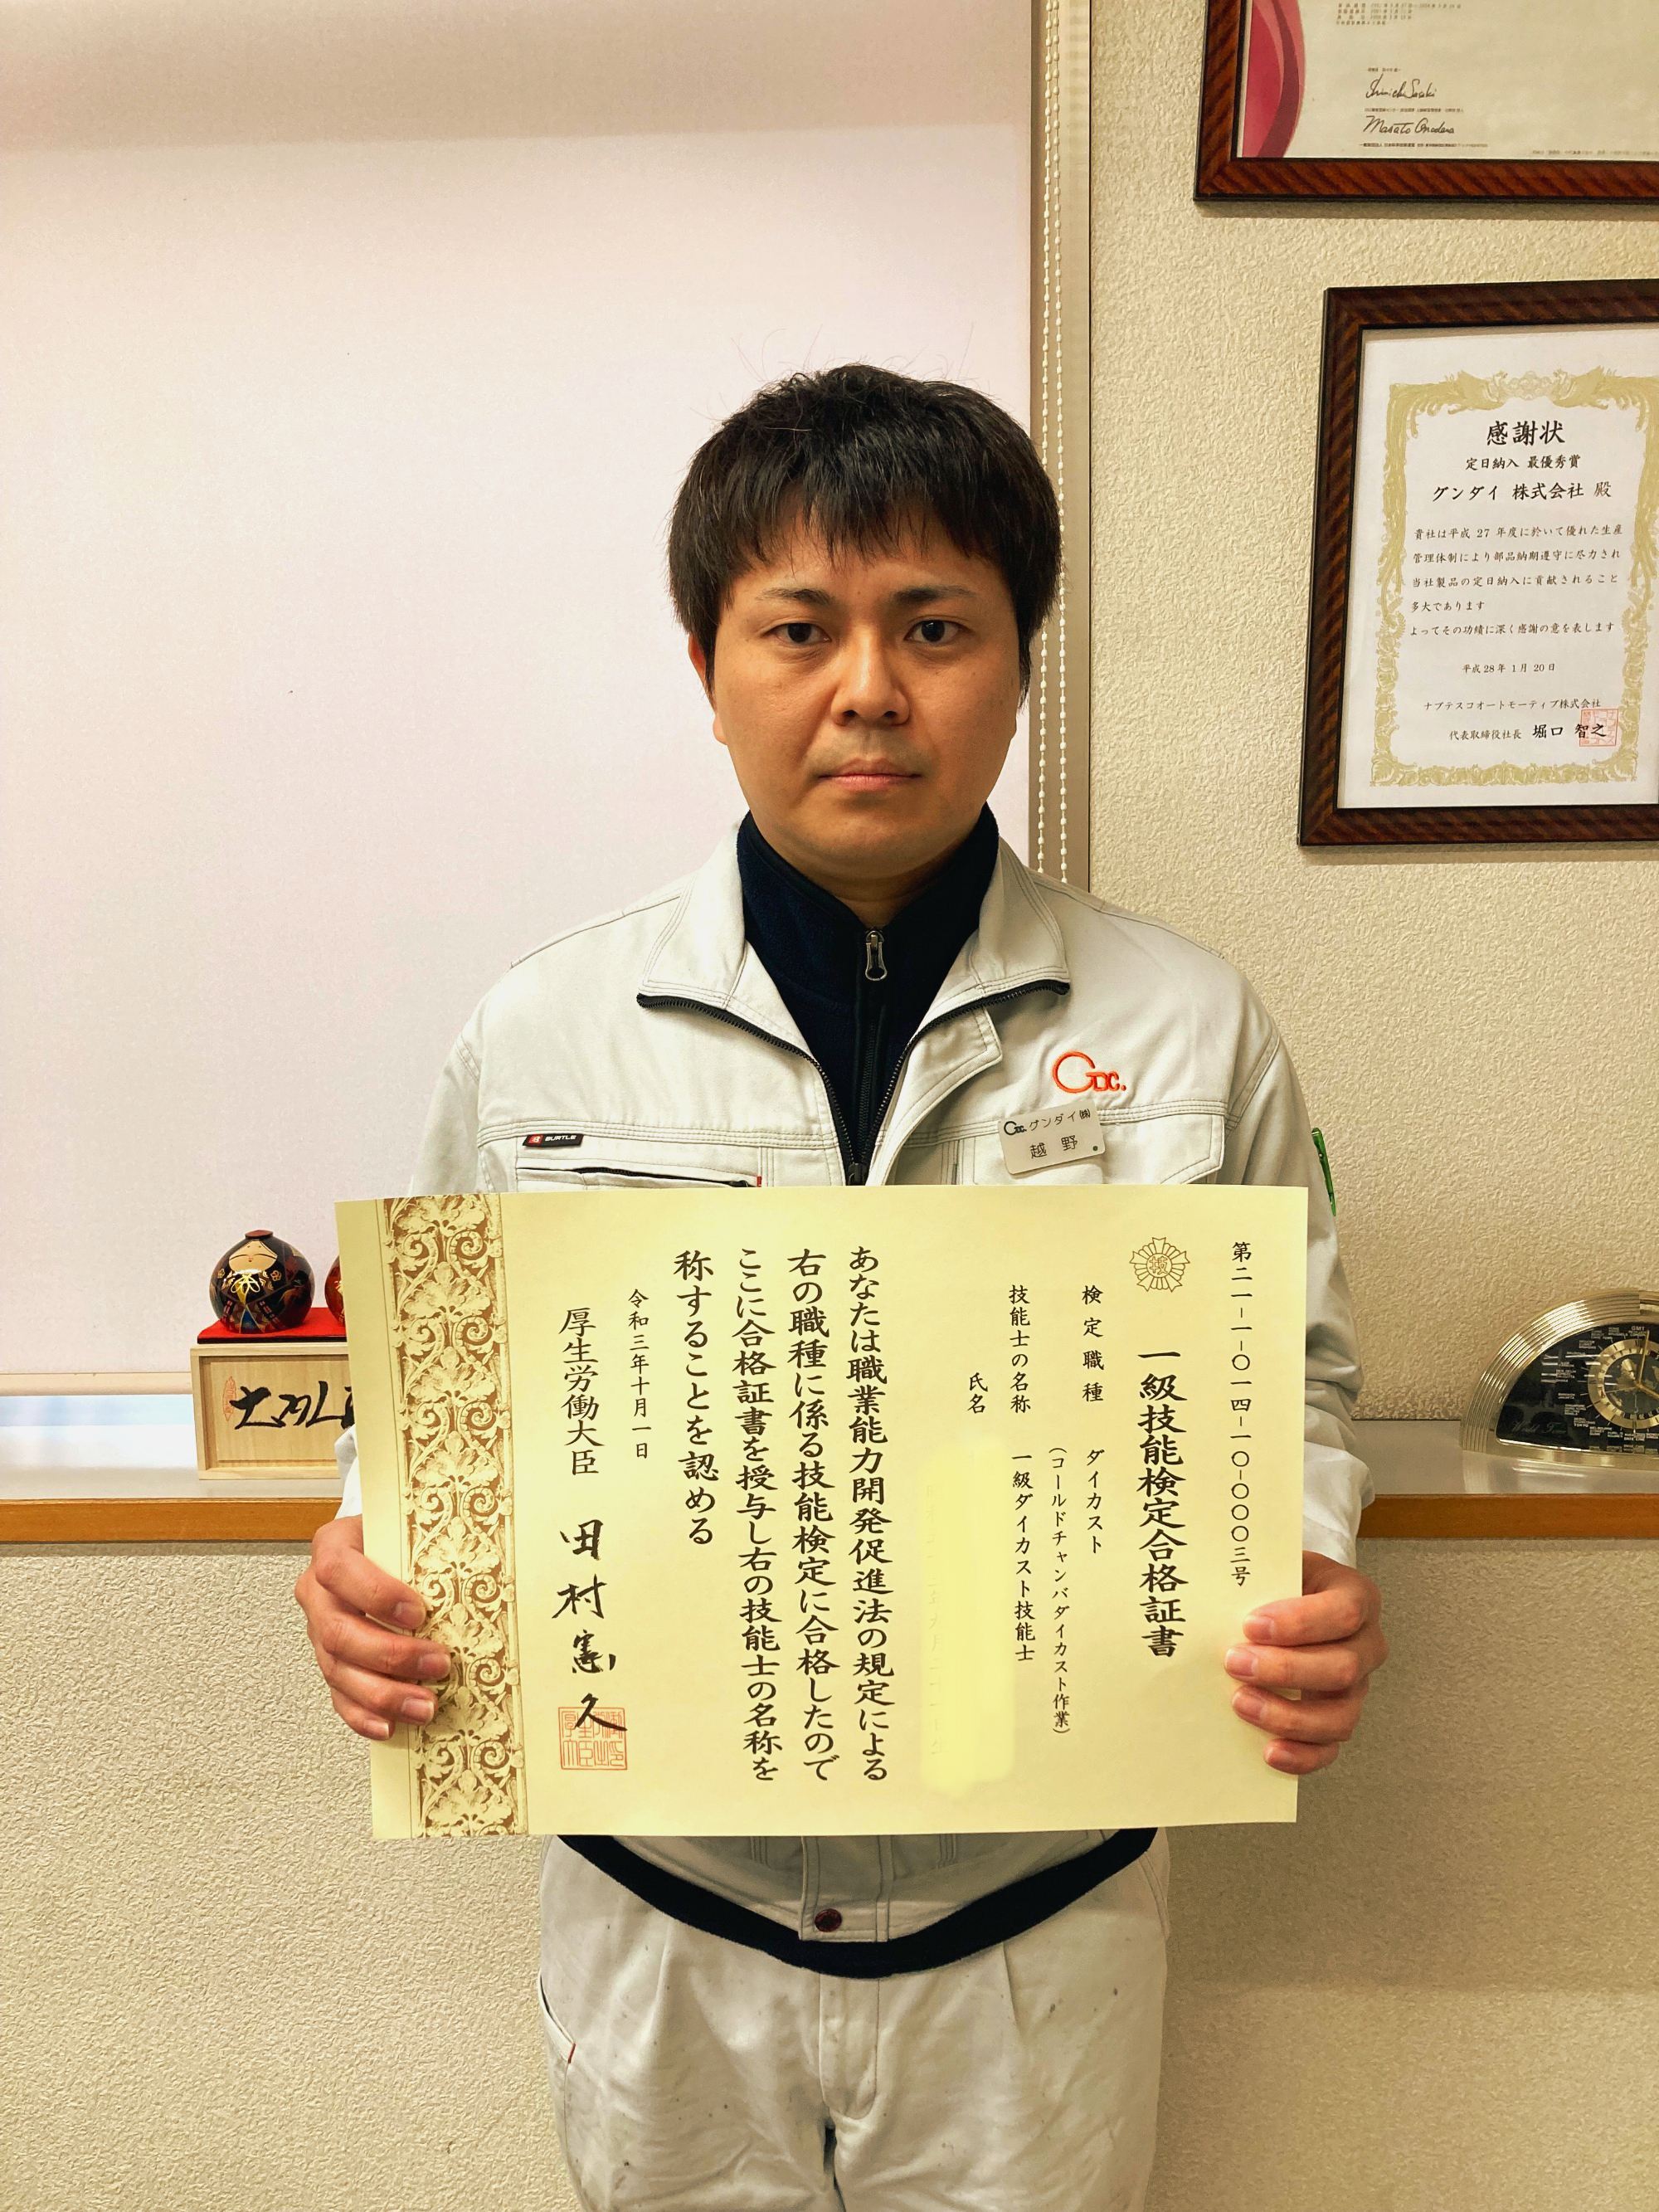 Masato Onodera
感謝状
定日納入 最優秀賞
グンダイ 株式会社 殿
貴社は平成 27 年度に於いて優れた生産
管理体制により部品納期遵守に尽力され
当社製品の定日納入に貢献されること
多大であります
よってその功績に深く感謝の意を表します
平成28年 1月 20日
ナブテスコオートモーティブ株式会社
代表取締役社長 堀口 智之
GDC.
BURTLE
GDC. グンダイ㈱
越野
第二一-一-〇一四-一〇-〇〇〇三号
一級技能検定合格証書
検定職種 ダイカスト
(コールドチャンバダイカスト作業)
技能士の名称 一級ダイカスト技能士
氏名
あなたは職業能力開発促進法の規定による
右の職種に係る技能検定に合格したので
ここに合格証書を授与し右の技能士の名称を
称することを認める
令和三年十月一日
厚生労働大臣 田村憲久
GMT
World Time